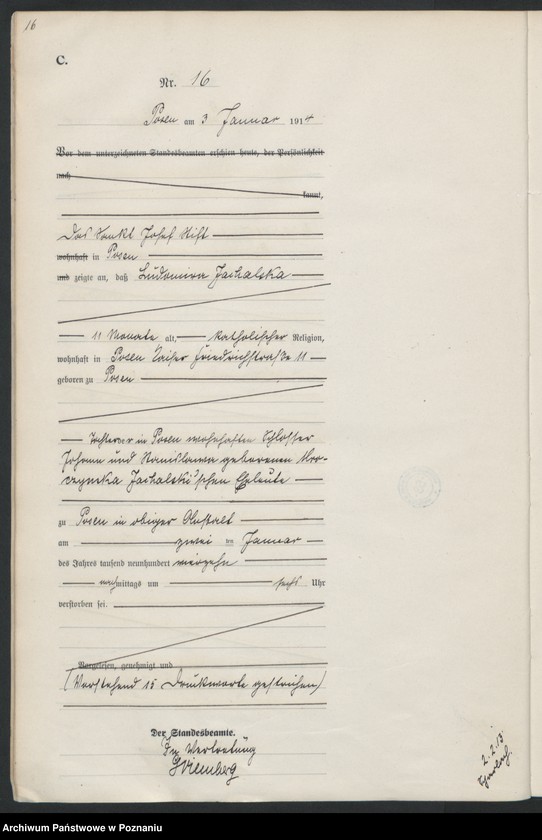 16
C.
Nr. 16
Posen am 3 Januar 1914
Vor dem unterzeichneten Standesbeamten erschien heute, der Persönlichkeit
nach
kannt,
Das Sankt Josef Stift
wohnhaft in Posen
und zeigte an, daß Ludomira Jachalska
11 Monate alt, katholischer Religion,
wohnhaft in Posen Kaiser Friedrichstraße 11
geboren zu Posen
Tochter der in Posen wohnhaften Schlosser
Johann und Stanislawa geborenen Mro-
czynska Jachalski'schen Eheleute
zu Posen in obiger Anstalt
am zwei ten Januar
des Jahres tausend neunhundert vierzehn
nachmittags um sechs Uhr
verstorben sei.
Vorgelesen, genehmigt und
(Vorstehend 15 Druckworte gestrichen)
Der Standesbeamte.
In Vertretung
2.2.13
Archiwum Państwowe w Poznaniu